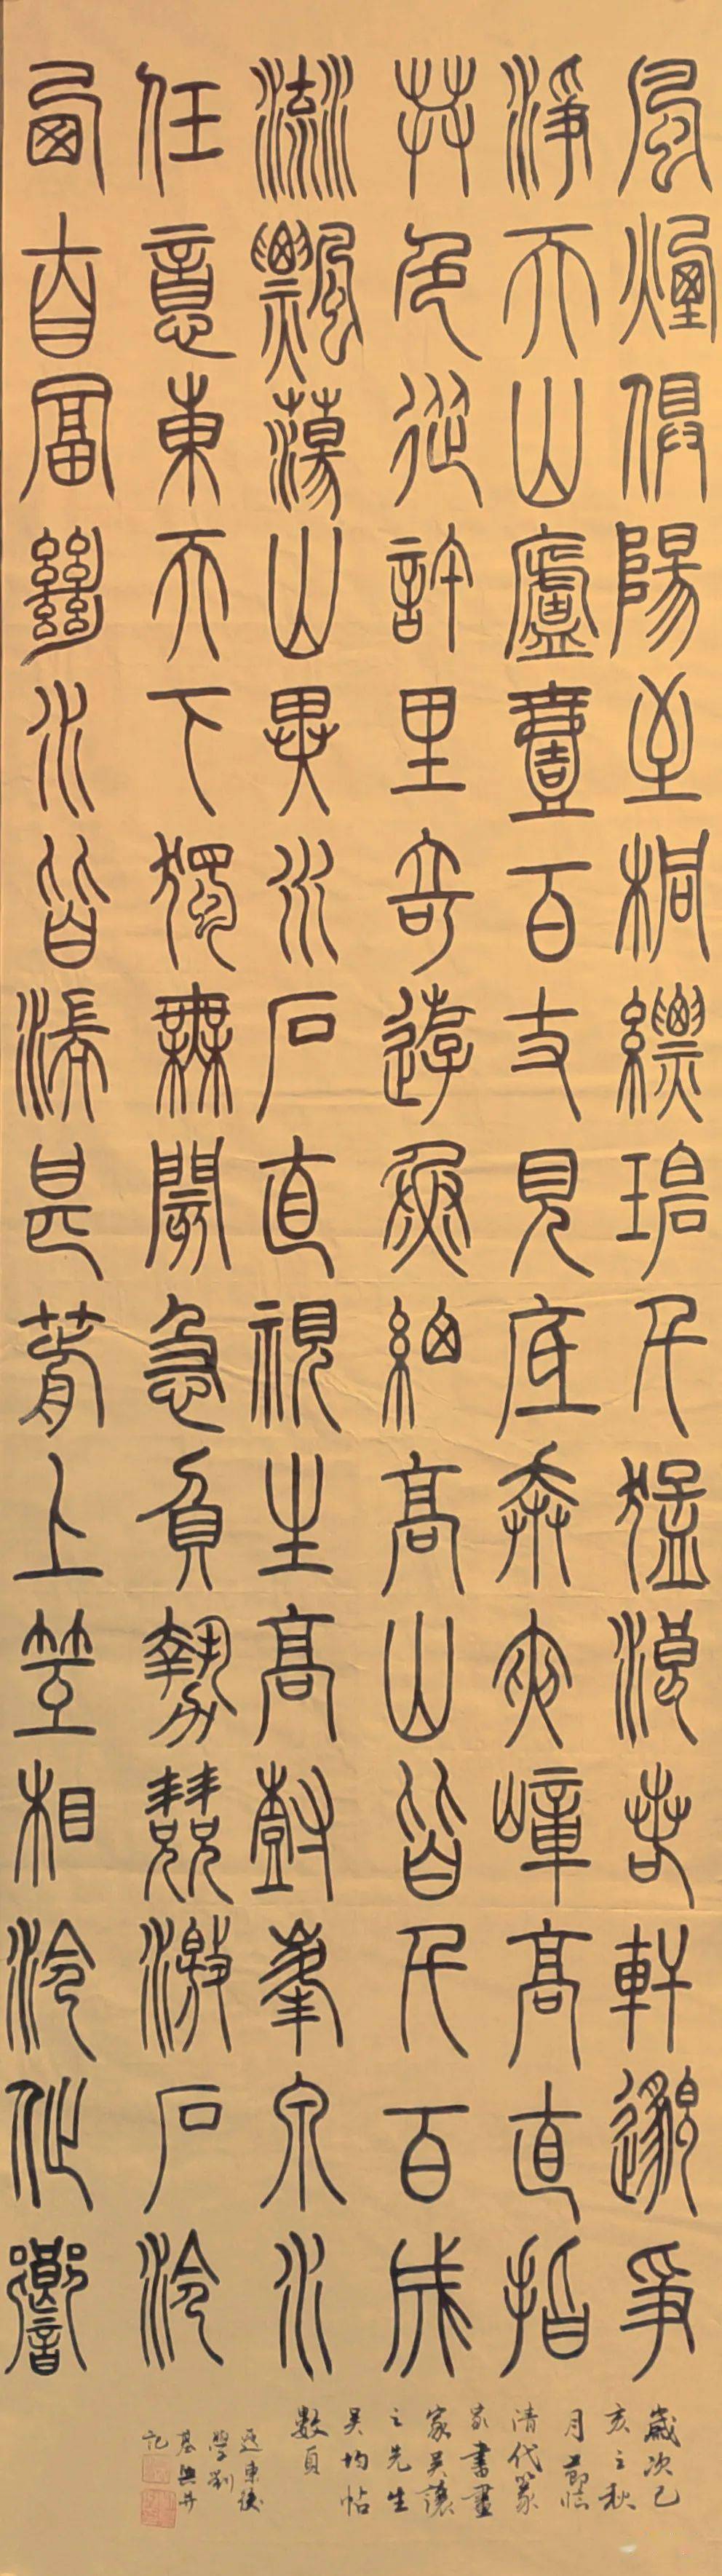 風煙俱陽至桐縹碧千猛浪若軒邈爭
淨天山廬壹百丈見底奔夾嶂高直指
共色從許里奇遊魚細高山皆千百成
流飄蕩山異水石直視生高樹峯泉水
任意東天下獨無閡急負勢競激石泠
西自富絕水皆湍甚箭上互相泠作響
歲次己
亥之秋
月節臨
清代篆
家書畫
家吳讓
之先生
吳均帖
數頁
遼東後
學劉
并
記